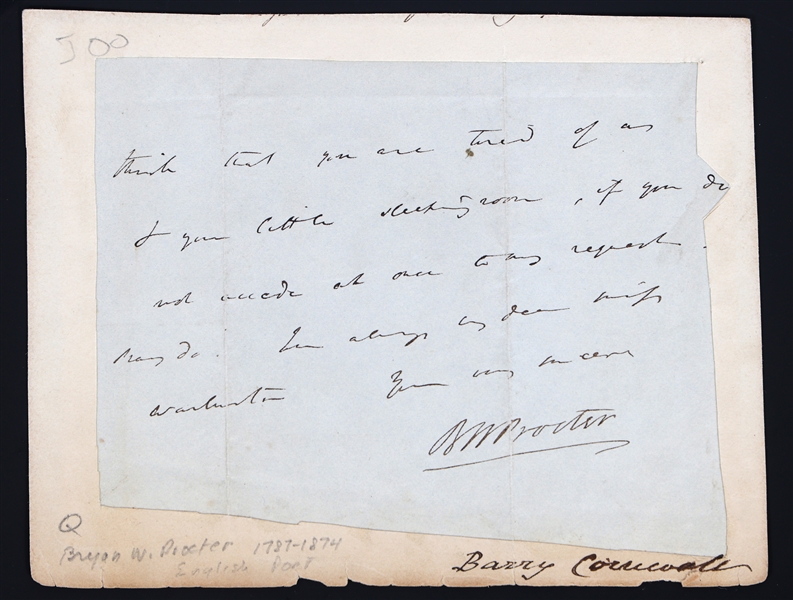 J00
think that you are tired of us
& your little sleeping room, if you do
not accede at once to my request.
Pray do. I am always my dear Miss
Warburton Yours very sincerely
B W Procter
Q
Bryan W. Procter 1787-1874
English Poet
Barry Cornwall